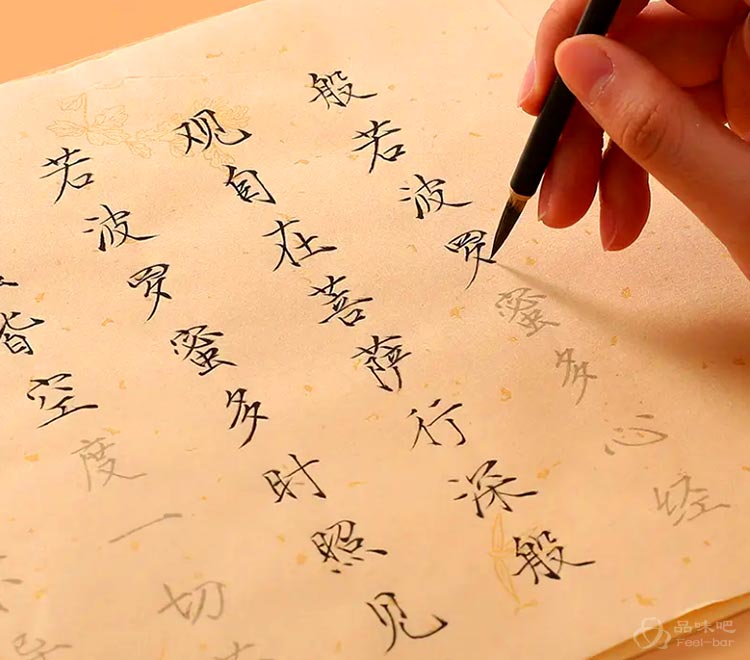 般若波罗蜜多心经
观自在菩萨行深般
若波罗蜜多时照见
皆空度一切
品味吧
Feel-bar